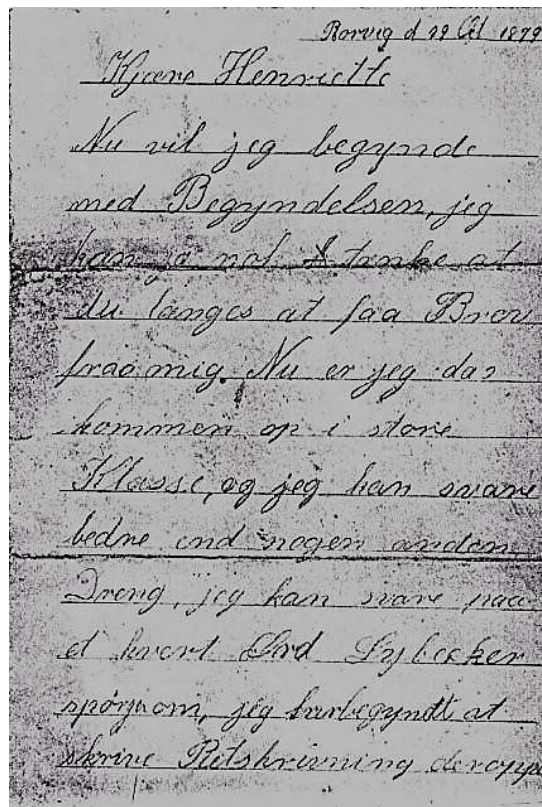 Rørvig d 22 Oct 1879
Kjære Henriette
Nu vil jeg begynde
med Begyndelsen, jeg
kan jo nok tænke at
du længes at faa Brev
fraa mig. Nu er jeg da
kommen op i store
Klasse, og jeg kan svare
bedre end nogen anden
Dreng, jeg kan svare paa
et hvert Ord Lybecker
spørger om, jeg har begyndt at
skrive Retskrivning deroppe